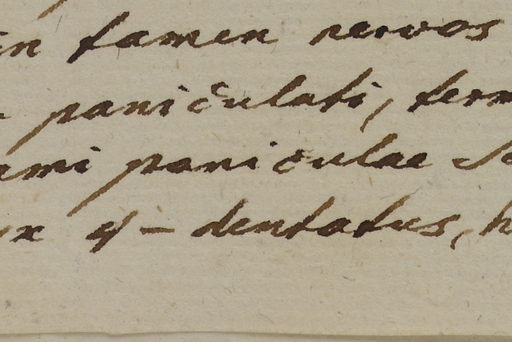 tamen nervos
paniculati, term
ami paniculae
x 4-dentatus, h